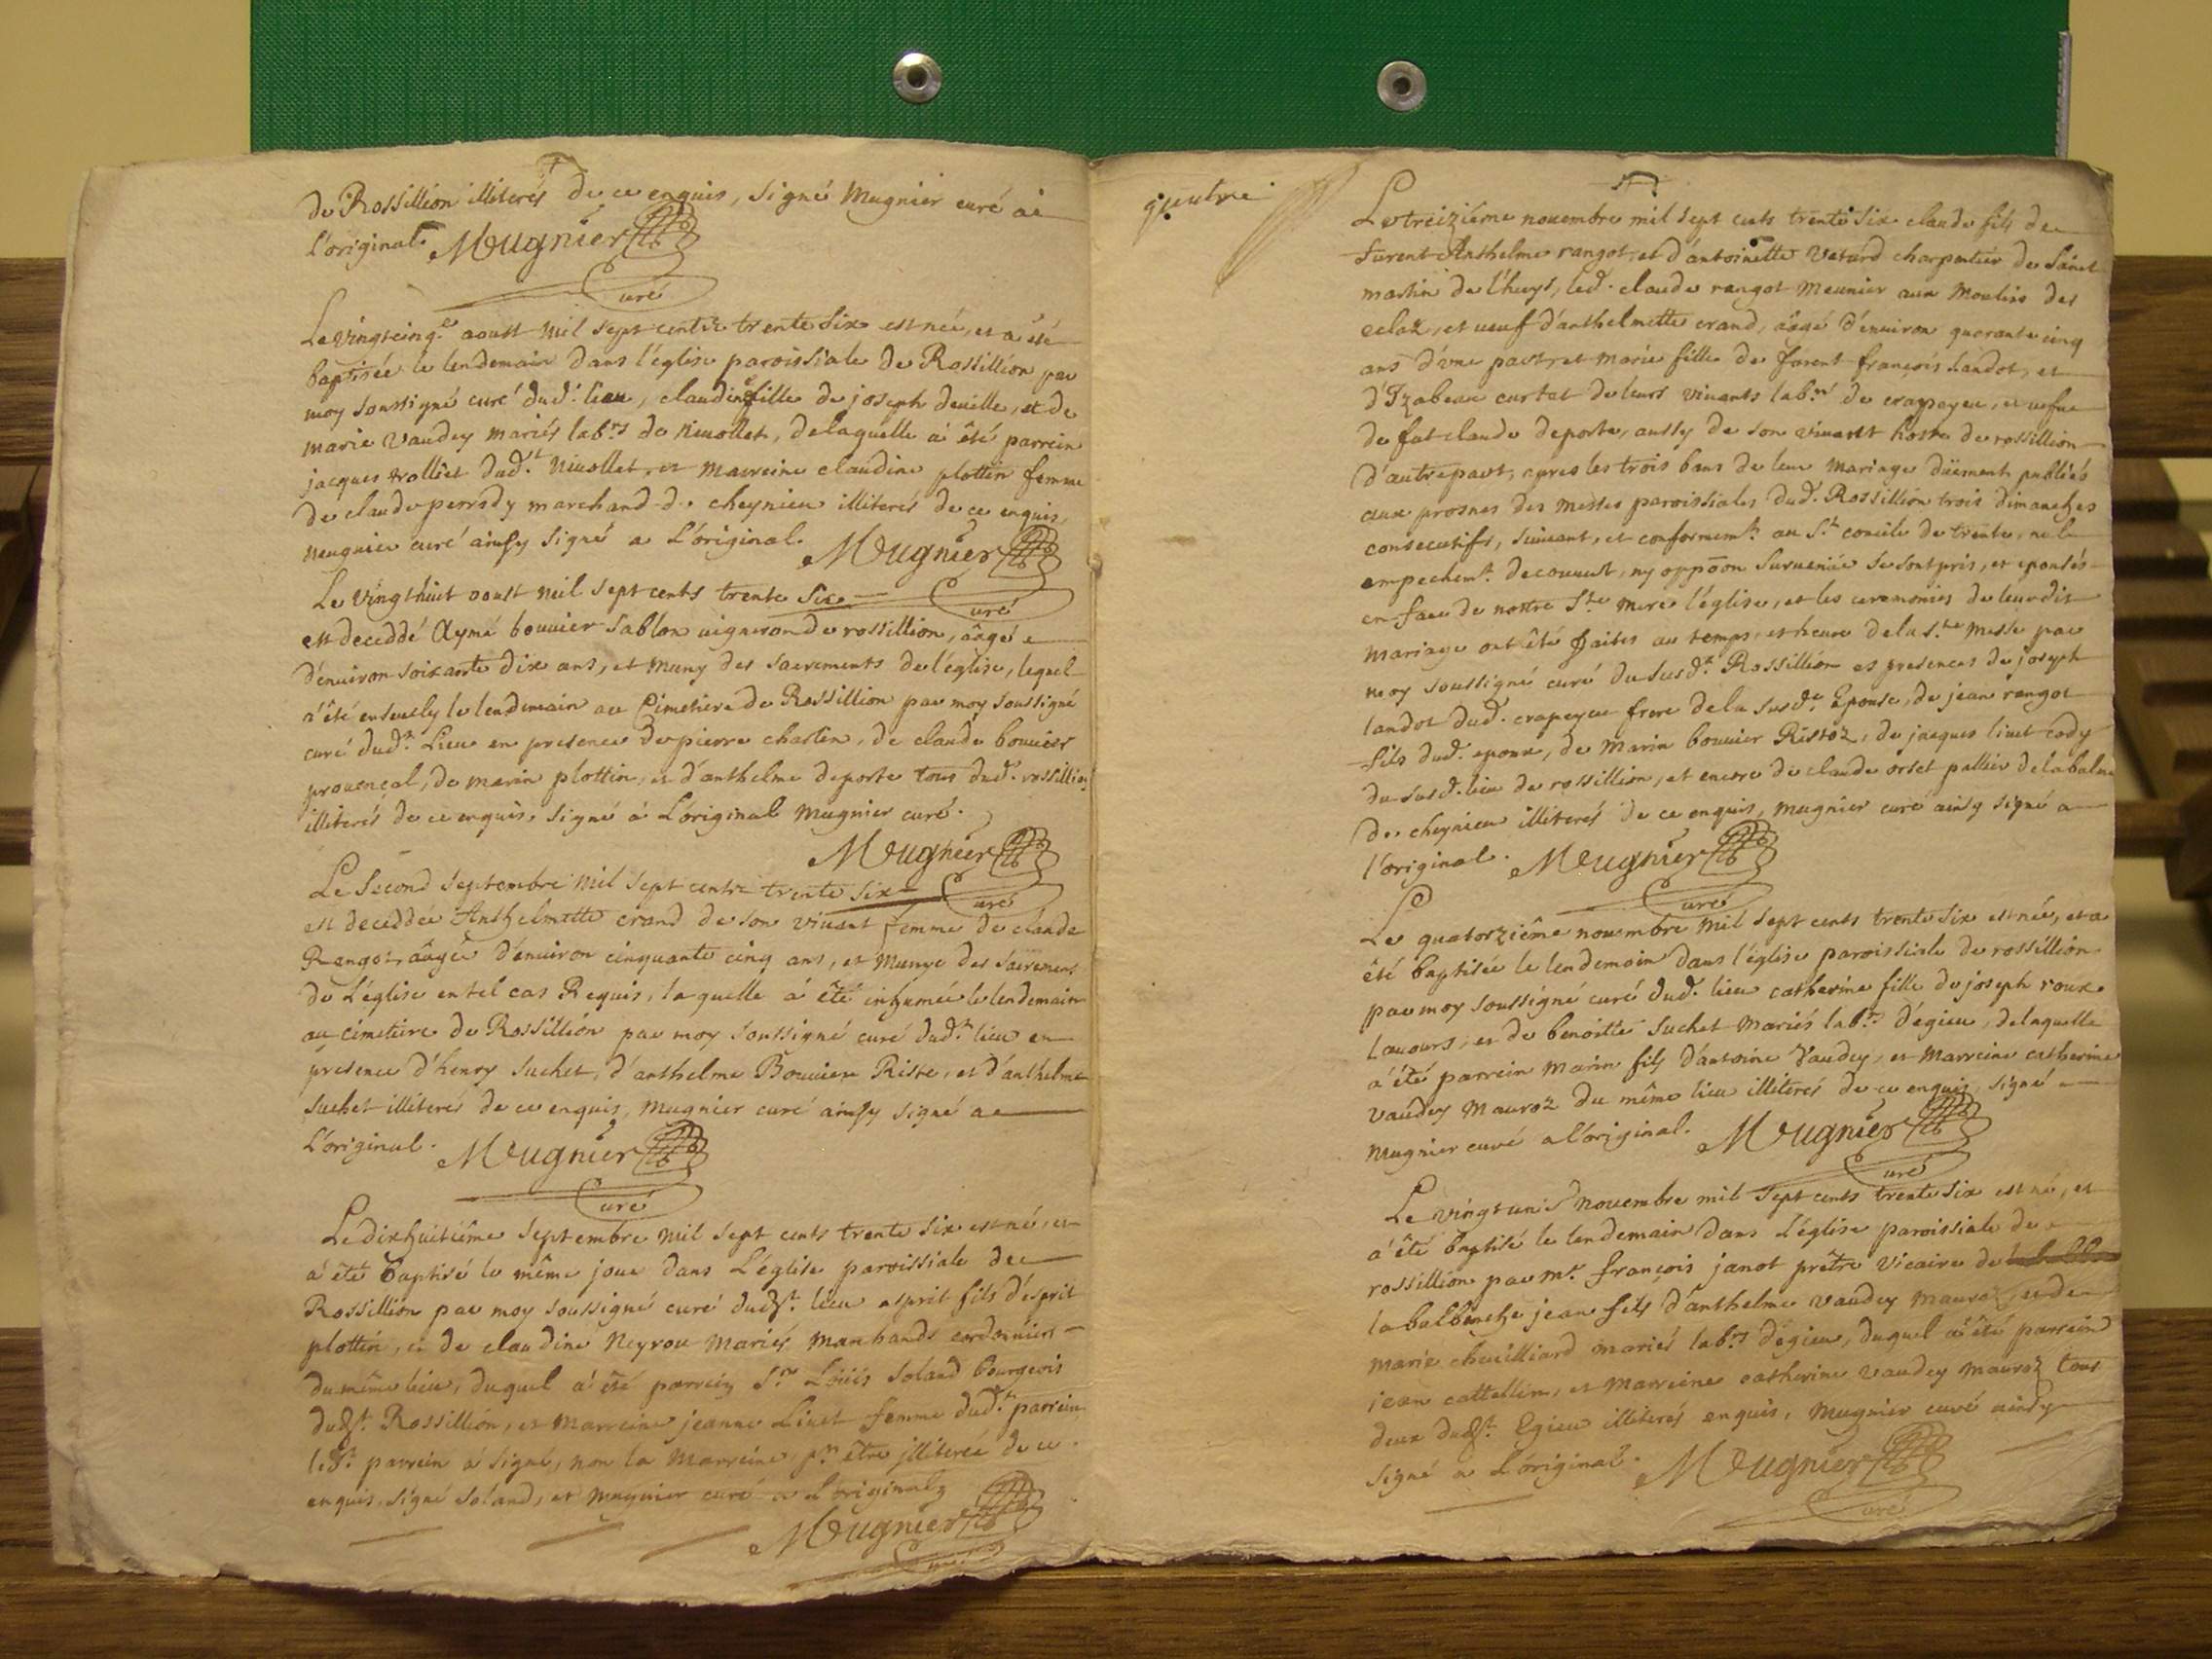 de Rossillion illiterés de ce enquis, signé Mugnier curé a
L'original. Mugnier
Curé
Le vingtcinq.e aoust mil sept cents trente six est née, et a été
baptisée le lendemain dans l'église paroissiale de Rossillion par
moy soussigné curé dud.t lieu, claudine fille de joseph deville, et de
marie Vaudey mariés lab.rs de nivollet, delaquelle a été parrein
jacques rolliet dud.t nivollet, et marreine claudine plottin femme
de claude perrody marchand de cheynieu illiterés de ce enquis,
mugnier curé ainsy signé a L'original. Mugnier
Curé
Le vingthuit aoust mil sept cents trente six
est deceddé Aymé bouvier sablon vigneron de rossillion, âagé
d'environ soixante dix ans, et muny des sacrements de l'église, lequel
a été ensevely le lendemain au Cimetiere de Rossillion par moy soussigné
curé dud.t Lieu en presence de pierre charlin, de claude bouvier
provençal, de marin plottin, et d'anthelme deporte tous dud. rossillion
illiterés de ce enquis, signé à L'original mugnier curé.
Mugnier
Curé
Le second septembre mil sept cents trente six
est deceddée Anthelmette crand de son vivant femme de claude
Rangot âagée d'environ cinquante cinq ans, et munye des sacremens
de L'église en tel cas Requis, laquelle a été inhumée le lendemain
au cimetiere de Rossillion par moy soussigné curé dud.t lieu en
presence d'henry suchet, d'anthelme Bouvier Riste, et d'anthelme
suchet illiterés de ce enquis, mugnier curé ainsy signé a
L'original. Mugnier
Curé
Le dixhuitiême septembre mil sept cents trente six est né, et
a été baptisé le même jour dans L'église paroissiale de
Rossillion par moy soussigné curé dudt. lieu esprit fils d'esprit
plottin, et de claudine Neyrou mariés marchands cordonniers
du même lieu, duquel a été parrein S.r Loüis soland bourgeois
dudt. Rossillion, et marreine jeanne Livet femme dud.t parrein
led.t parrein a signé, non la marreine p.r être illiterée de ce
enquis, signé soland, et mugnier curé a L'original
Mugnier
Curé
Le treiziéme novembre mil sept cents trente six claude fils de
furent Anthelme rangot, et d'antoinette Veturd charpentier de Sainct
martin de l'huys, led. claude rangot meunier aux moulins des
eclaz, et veuf d'anthelmette crand, âagé d'environ quarante cinq
ans d'une part, et marie fille de furent françois Landot, et
d'Izabeau curtet de leurs vivants lab.rs de crapeyeu, et vefve
de fut claude deporte, aussy de son vivant hoste de rossillion
d'autre part, apres les trois bans de leur mariage düement publiés
aux prosnes des messes paroissiales dud. Rossillion trois dimanches
consecutifs, suivant, et conformem.t au S.t concile de trente, nul
empechem.t decouvert, ny oppōon survenüe se sont pris, et epousés
en face de nostre S.te mere l'église, et les ceremonies de leurdit
mariage ont été faites au temps, et heure de la S.te messe par
moy soussigné curé du susd.t Rossillion es presences de joseph
landot dud. crapeyeu frere de la susd.e Epouse, de jean rangot
fils dud. epoux, de marin bouvier Ristoz, de jacques livet cody
du susd. lieu de rossillion, et encore de claude orset pallier de la balme
de cheynieu illiterés de ce enquis, mugnier curé ainsy signé a
l'original. Mugnier
Curé
Le quatorziême novembre mil sept cents trente six est née, et a
été baptisée le lendemain dans l'église paroissiale de rossillion
par moy soussigné curé dud. lieu catherine fille de joseph roux
Lavours, et de benoitte suchet mariés lab.rs d'égieu, delaquelle
a été parrein marin fils d'antoine Vaudey, et marreine catherine
vaudey mauroz du même lieu illiterés de ce enquis, signé
mugnier curé a l'original. Mugnier
Curé
Le vingtuni novembre mil sept cents trente six est né, et
a été baptisé le lendemain dans L'église paroissiale de
rossillion par m.r françois janot prêtre vicaire de
la balbenche jean fils d'anthelme vaudey mauroz, et de
marie chevilliard mariés lab.rs d'égieu, duquel a été parrein
jean cattellin, et marreine catherine vaudey mauroz tous
deux dudt. Egieu illiterés enquis, mugnier curé ainsy
signé a L'original. Mugnier
Curé